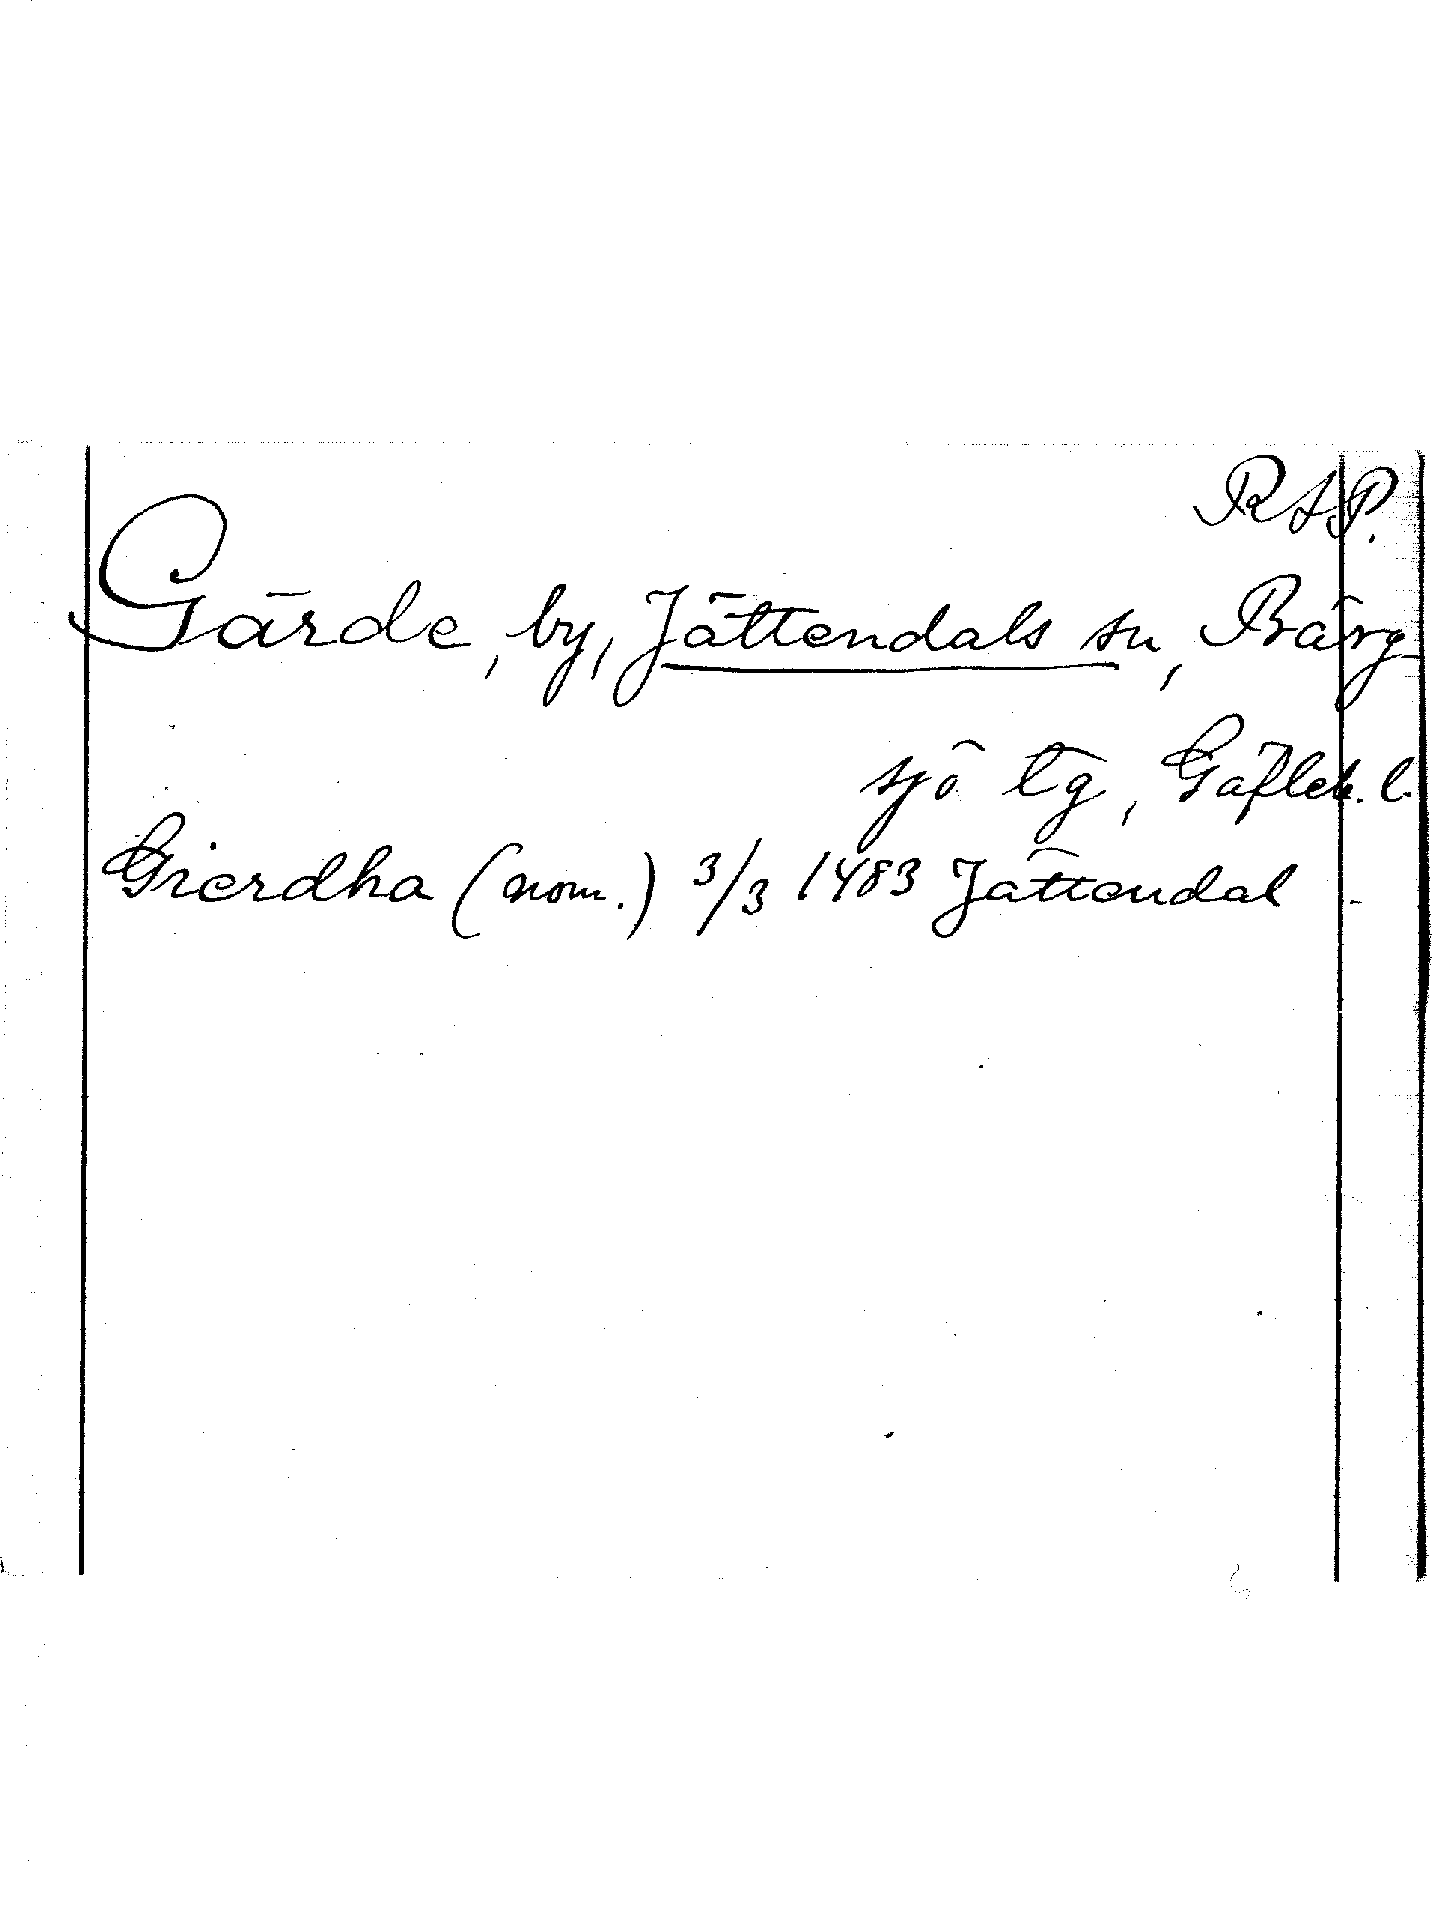 RAP.
Gärde, by, Jättendals sn, Bärg
sjö tg, Gäfleb. l.
Gierdha (nom.) 3/3 1483 Jättendal